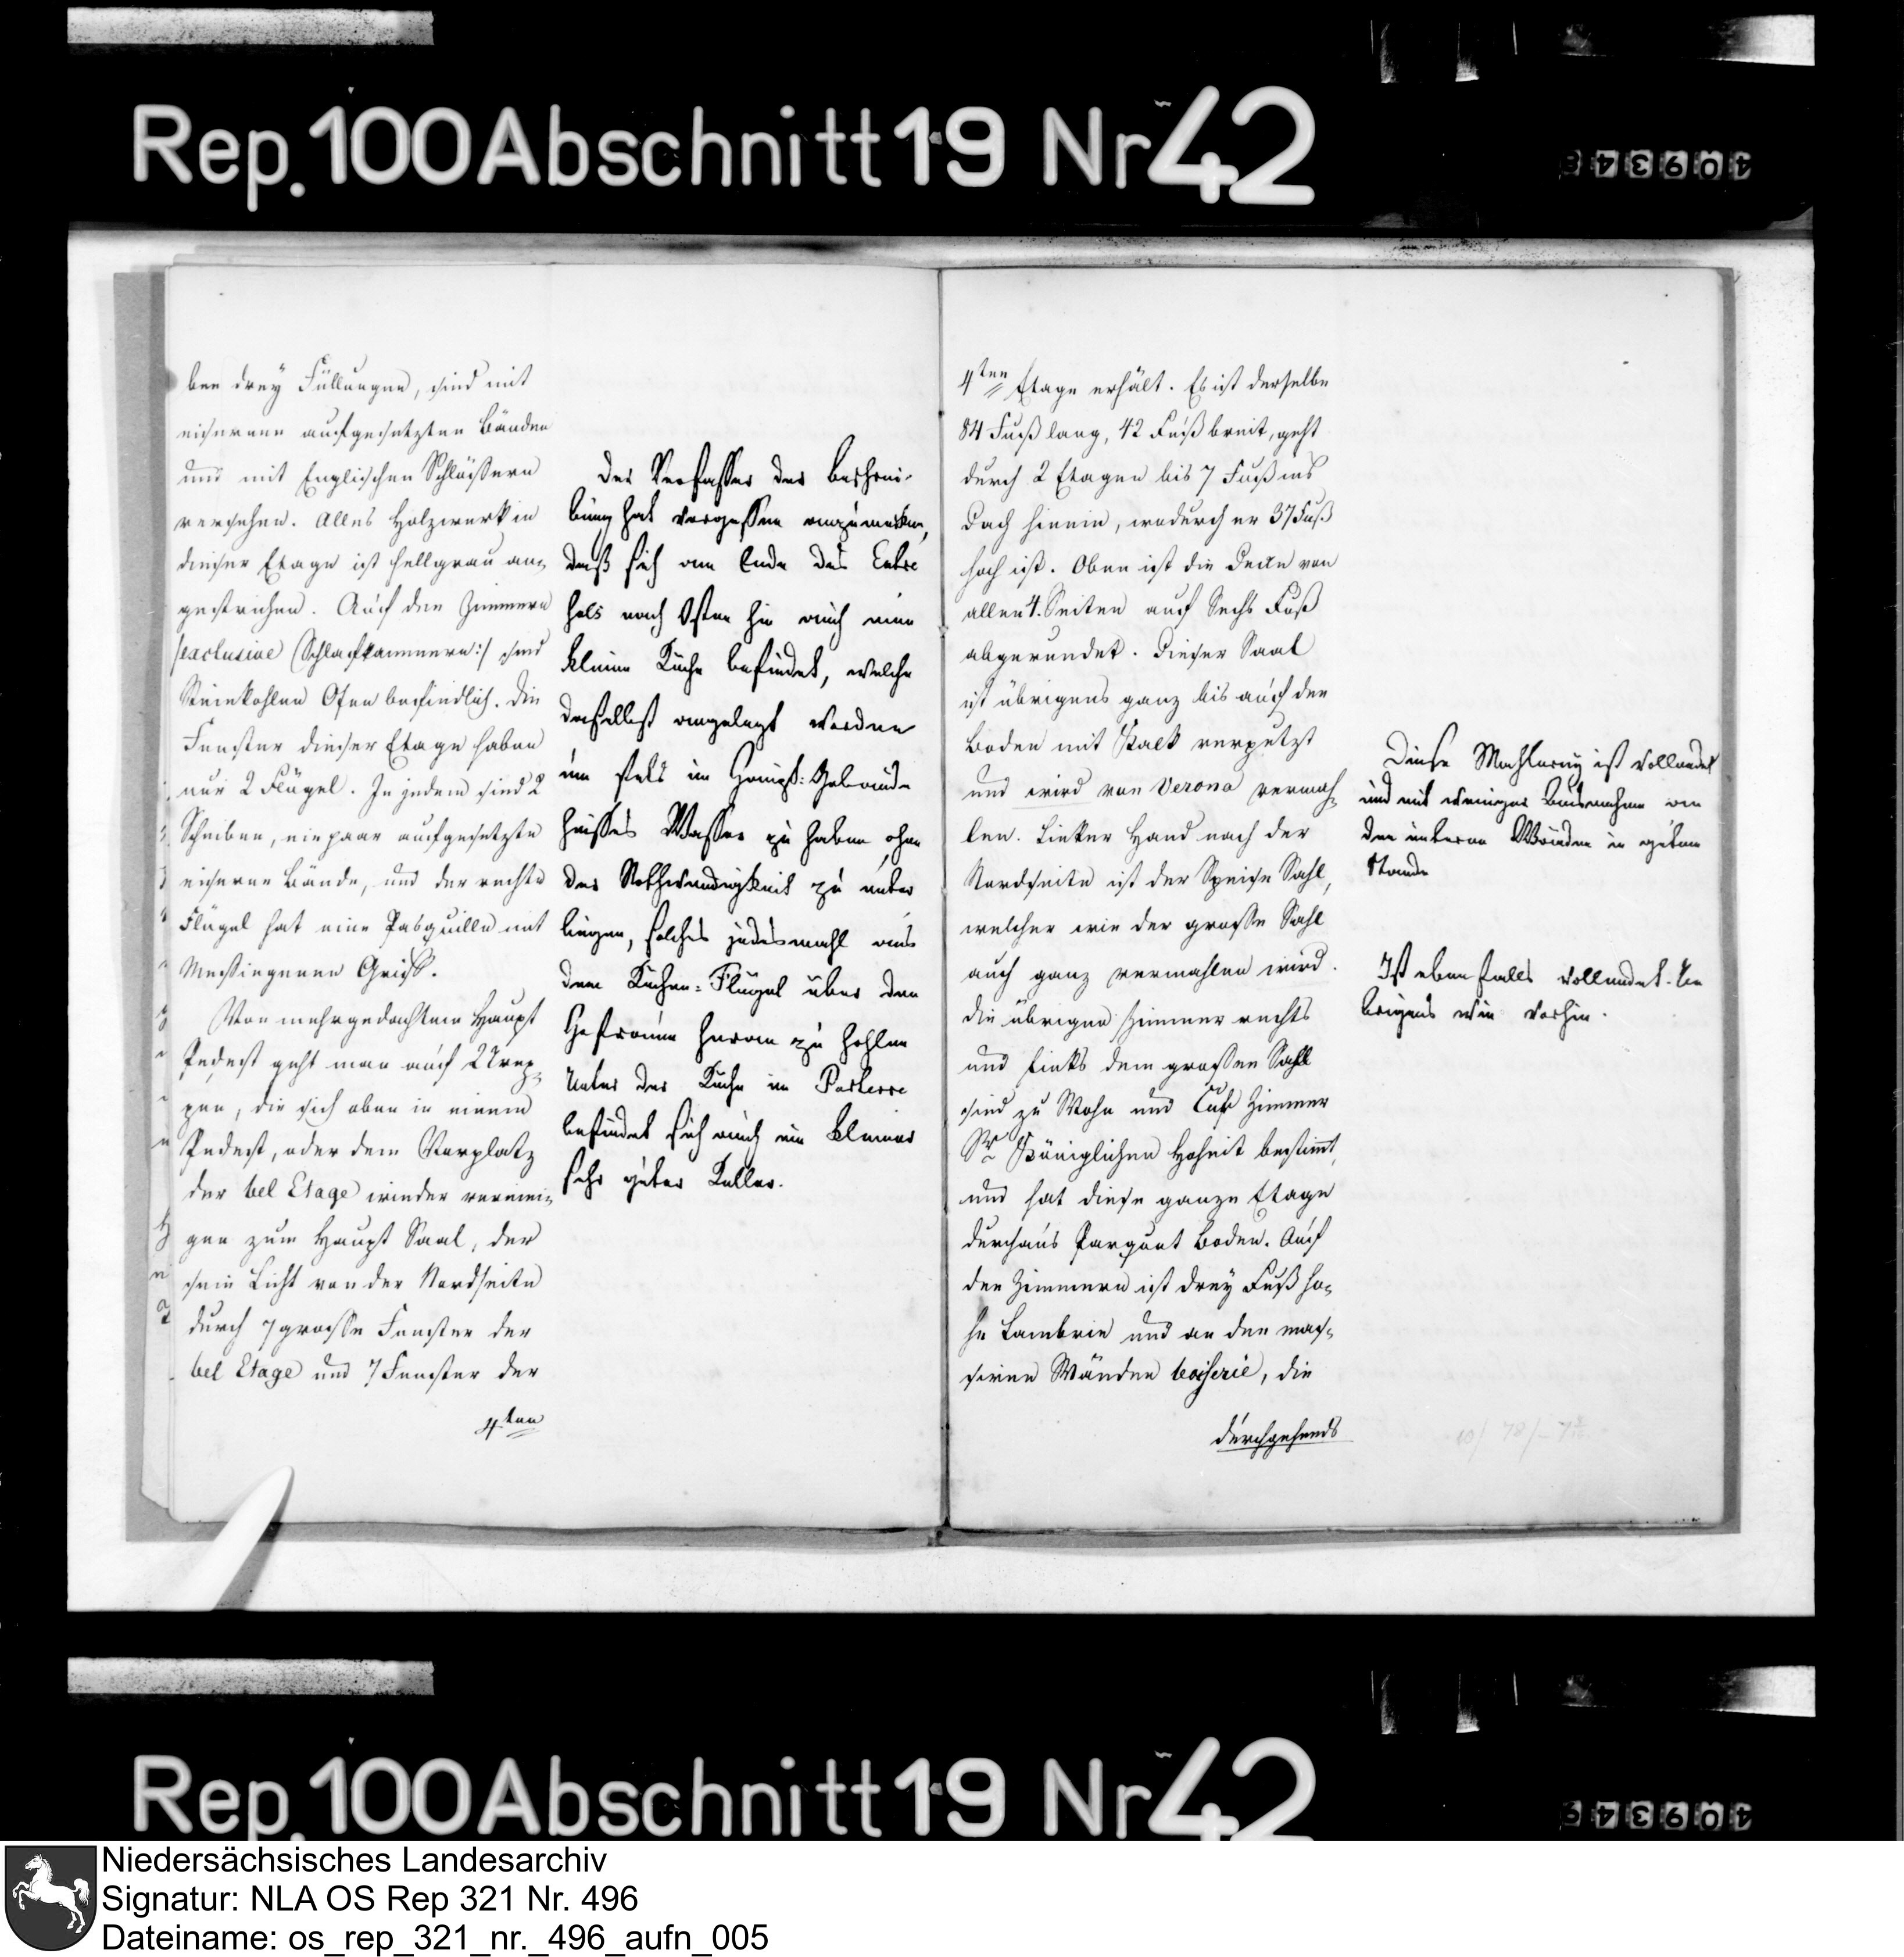 Rep. 100 Abschnitt 19 Nr 42
409348
ben drey Füllungen, sind mit
eisernen aufgesetzten Bänden
und mit Englischen Schlössern
versehen. Alles Holzwerk in
dieser Etage ist hellgrau an-
gestrichen. Auf den Zimmern
/exclusive Schlafkammern:/ sind
Steinkohlen Ofen befindlich. Die
Fenster dieser Etage haben
nur 2 Flügel. In jedem sind 2
Scheiben, ein paar aufgesetzte
eiserne Bände, und der rechte
Flügel hat eine Pasquille mit
Messingenen Griff.
Von mehrgedachtem Haupt
Pedest geht man auf 2 Trep-
pen, die sich oben in einem
Pedest, oder dem Vorplatz
der bel Etage wieder vereini-
gen zum Haupt Saal, der
sein Licht von der Nordseite
durch 7 grosse Fenster der
bel Etage und 7 Fenster der
4ten
Der Verfasser der Beschrei-
bung hat vergessen anzumerken,
daß sich am Ende des Entre
sols nach Osten hin auch eine
kleine Küche befindet, welche
daselbst angelegt worden
um stets im Haupt-Gebäude
heisses Wasser zu haben, ohne
der Nothwendigkeit zu unter
liegen, solches jedesmahl aus
dem Küchen-Flügel über den
herum zu hohlen
Unter der Küche im Parterre
befindet sich auch ein kleiner
sehr guter Keller.
4ten Etage erhält. Es ist derselbe
84 Fuß lang, 42 Fuß breit, geht
durch 2 Etagen bis 7 Fuß ins
Dach hinein, wodurch er 37 Fuß
hoch ist. Oben ist die Decke von
allen 4. Seiten auf Sechs Fuß
abgerundet. Dieser Saal
ist übrigens ganz bis auf den
Boden mit Kalk verputzt
und wird von Verona vermah-
len. Linker Hand nach der
Nordseite ist der Speise Sahl,
welcher wie der grosse Sahl
auch ganz vermahlen wird.
die übrigen Zimmer rechts
und links dem grossen Sahl
sind zu Wohn und Zimmer
Sr Königlichen Hoheit bestimmt,
und hat diese ganze Etage
durchaus Parquet Boden. Auf
den Zimmern ist drey Fuß ho-
he Lambrie und an den mas-
siven Wänden boiserie, die
durchgehends
Diese Mahlerey ist vollendet
und mit weniger Ausnahme an
den unteren Wänden in gutem
Stande
Ist ebenfalls vollendet. Ue
brigens wie vorhin.
Rep. 100 Abschnitt 19 Nr 42
409349
Niedersächsisches Landesarchiv
Signatur: NLA OS Rep 321 Nr. 496
Dateiname: os_rep_321_nr._496_aufn_005